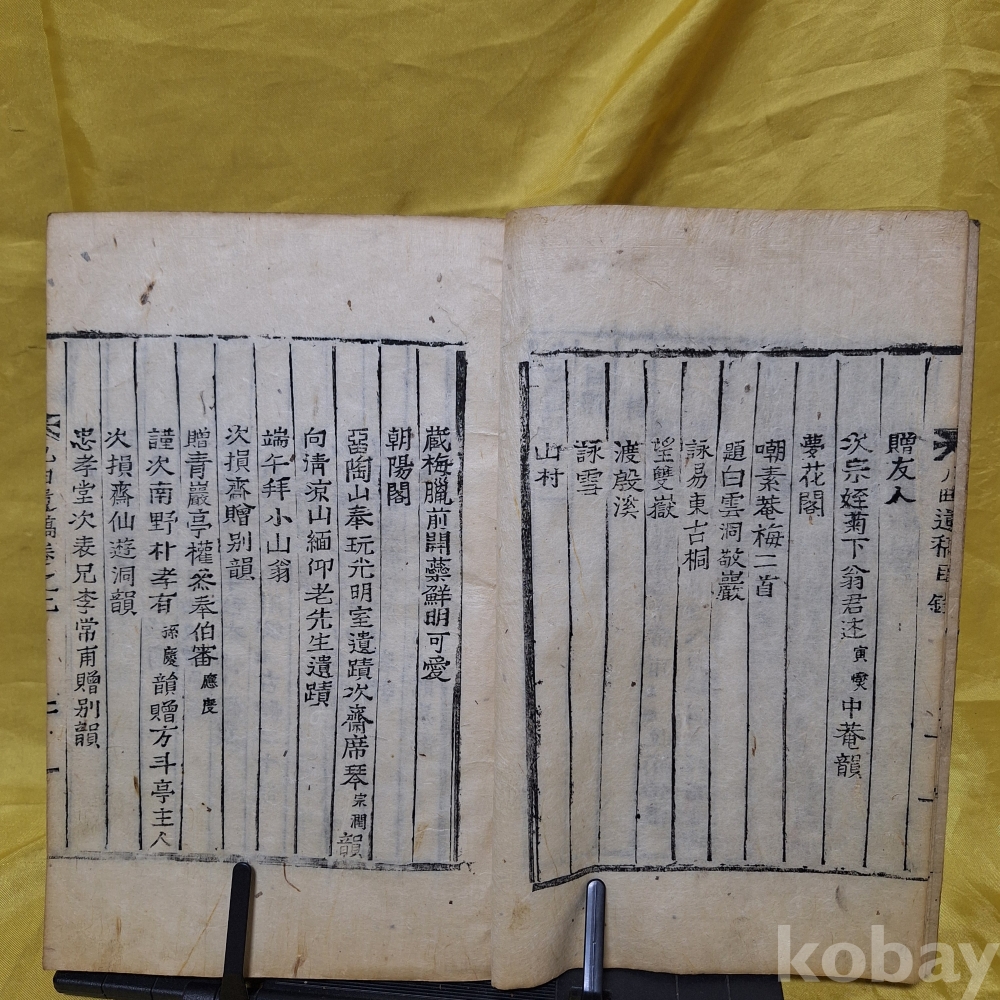 田遺稿目錄
贈友人
次宗姪菊下翁君逑寅燮中菴韻
夢花閣
嘲素菴梅二首
題白雲洞敬巖
詠易東古桐
望雙嶽
渡殷溪
詠雪
山村
蔵梅臘前開蘂鮮明可愛
朝陽閣
留陶山奉玩光明室遺蹟次齋席琴宗潤韻
向清凉山緬仰老先生遺蹟
端午拜小山翁
次損齋贈別韻
贈青巖亭權叅奉伯審應度
謹次南野朴孝有孫慶韻贈方斗亭主人
次損齋仙遊洞韻
忠孝堂次表兄李常甫贈別韻
田遺稿卷之
kobay